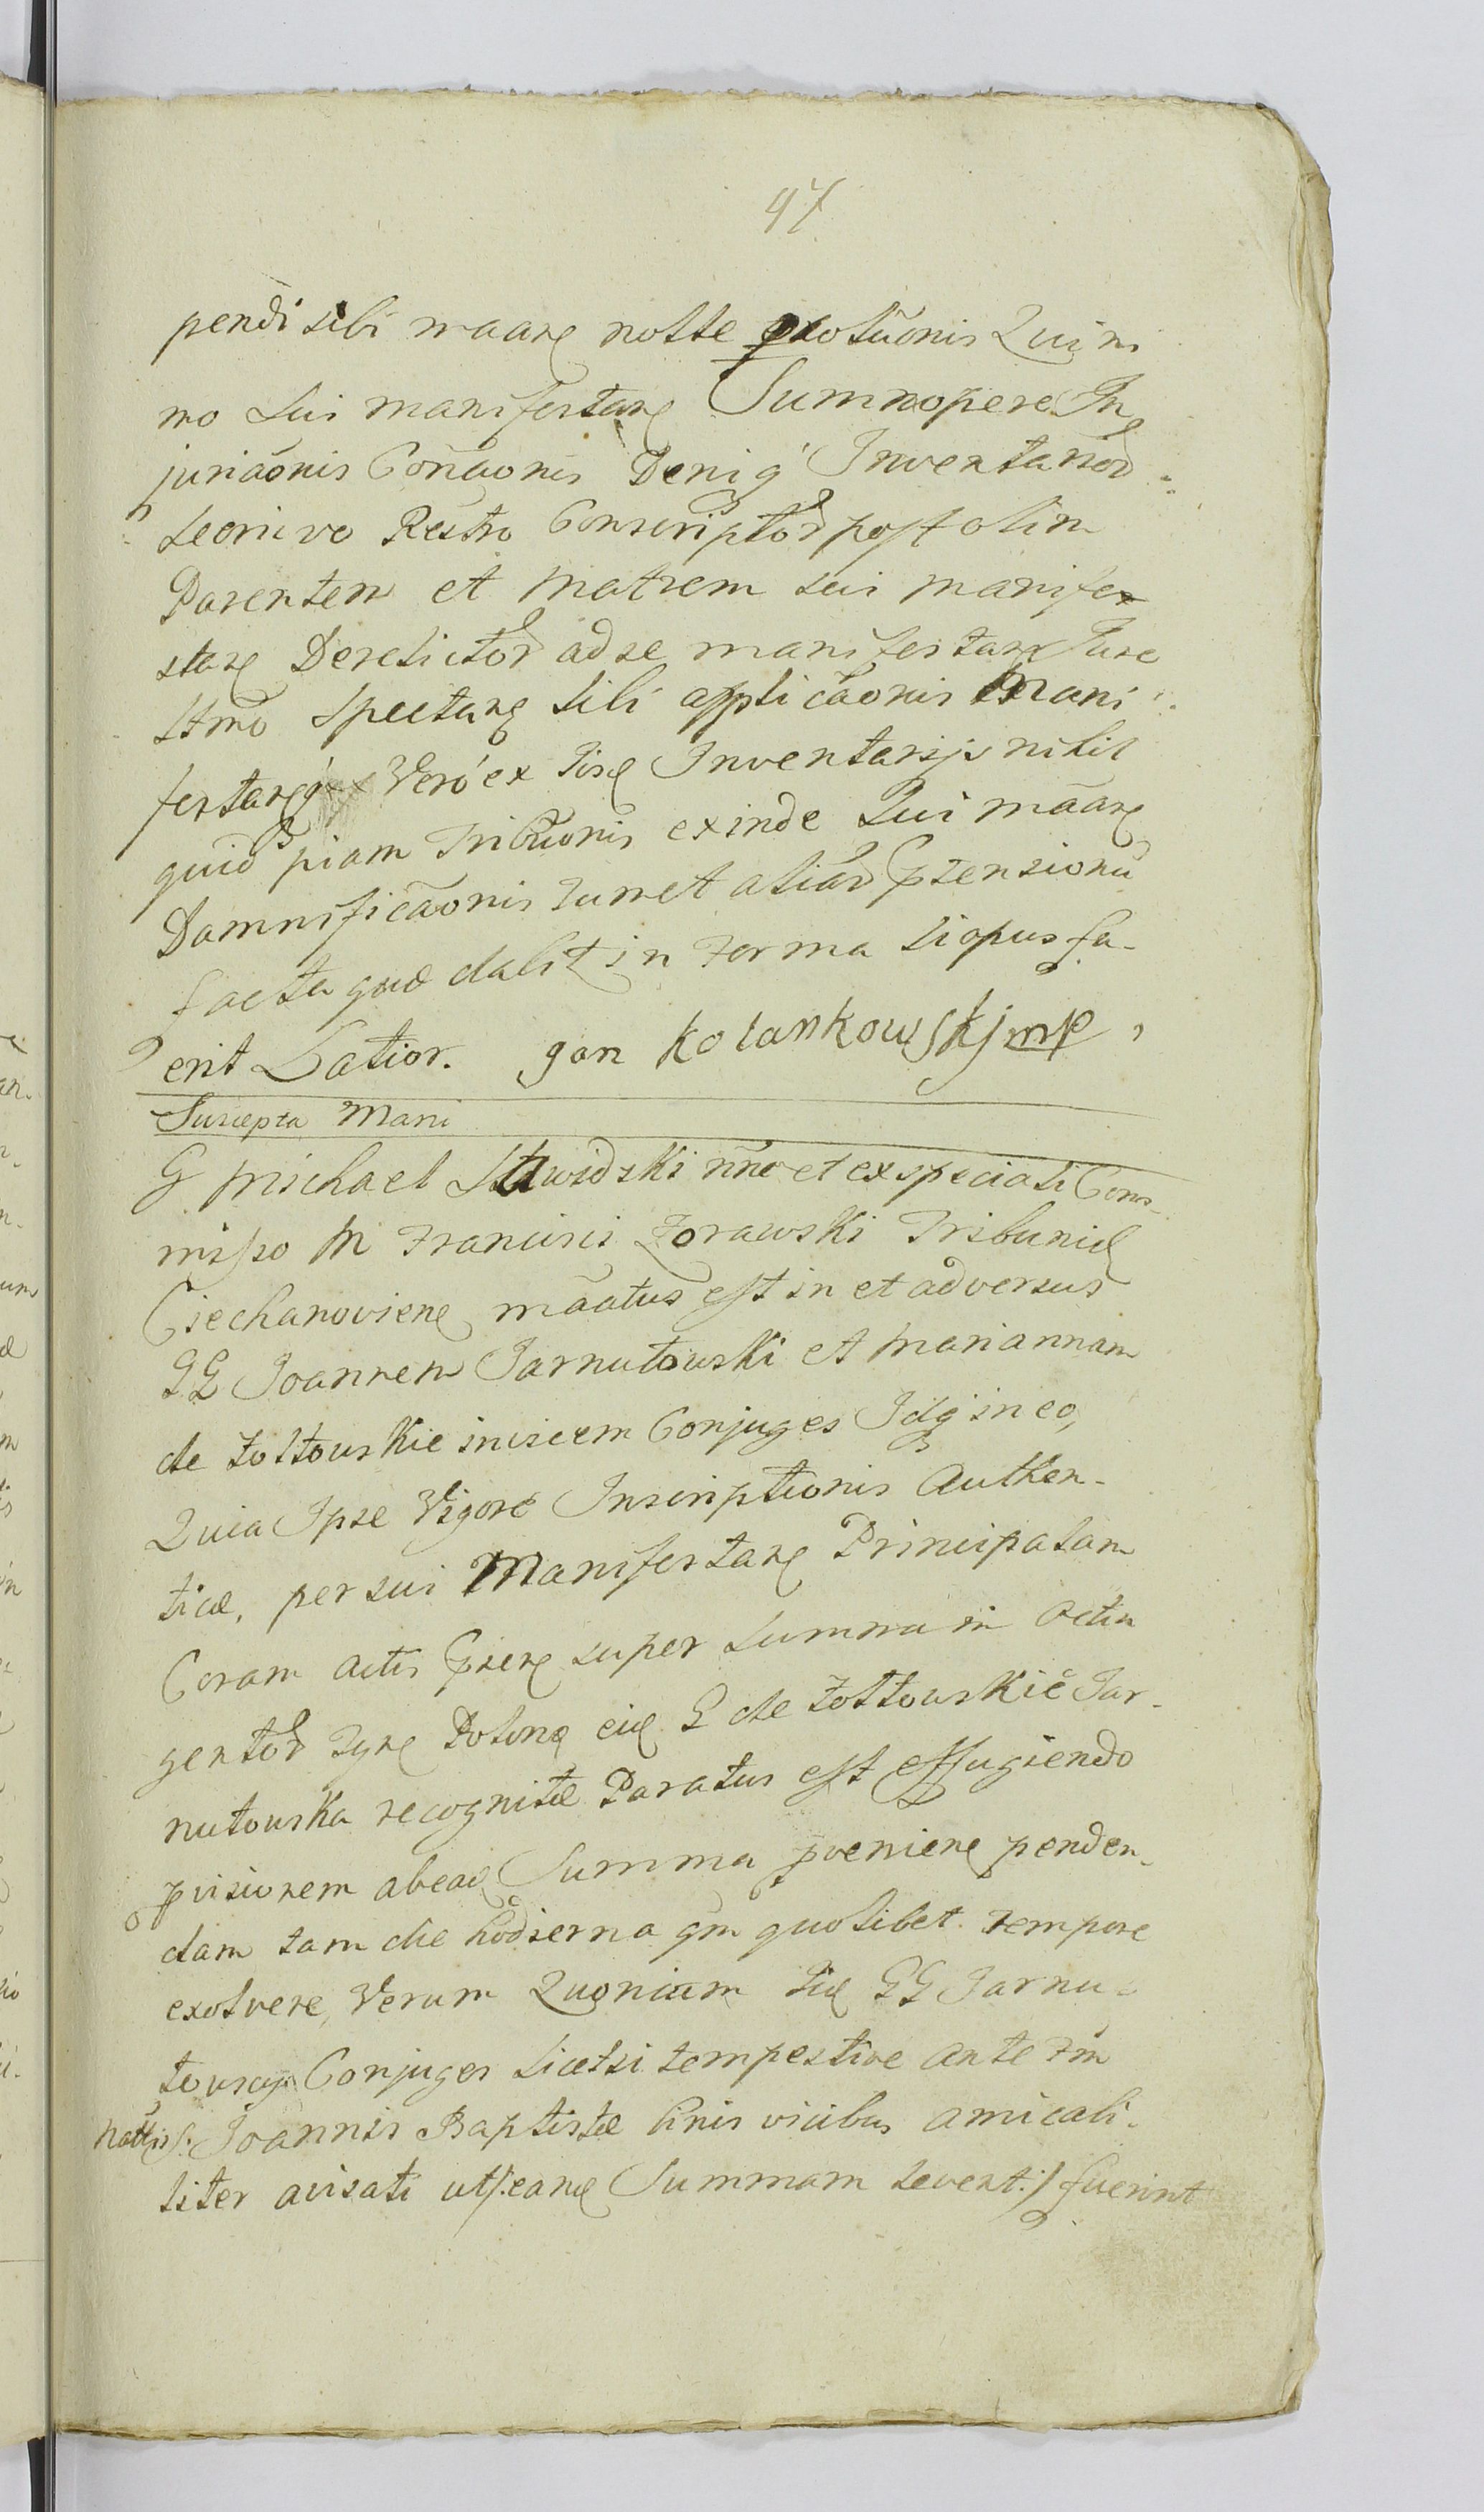 97
pendi sibi maare nolle exoluõnis Quini
mo sui manifestare Sumnopere In
juriaõnis Coñaonis Deniq Inventarior
seoru vo Restro Conscriptor post olim
Parentem et Matrem sui manife
stare Derelictor ad se manifestare Jure
ltmo Spectare sibi applicaõnis Mani
festare q Vero ex Tise Inventarijs nihil
quid piam Tribuõnis exinde Sui mãare
Damnificaõnis Jumet aliar Prensionu
facta quæ dabit in Forma si opus fu-
erit Latior. Jan Kolankowskj mp
Suscepta Mani
G Michael Stawidzki nño et ex speciali Com-
misso M Francisci Zorawski Tribunid
Ciechanoviene mãatus est in et adversus
GG Joannem Jarnutowski et Mariannam
de Zoltowskie invicem Conjuges Idq in eo,
Quia Ipse Vigore Inscriptionis Authen-
ticæ, per sui Manifestare Principalam
Coram actis Prene super Summam Octin
gentor Tyne Polone eid G de Zoltowskie Jar-
nutowska recognitæ Paratus est effugiendo
pvisionem ab ead Summa pveniene penden-
dam tam die hodierna qm quolibet tempore
exolvere, Verum Quoniam tid GG Jarnu-
towscy Conjuges licetsi tempestive ante Fm
Natlis S. Joannis Baptistæ binis vicibus amicali-
liter avisati ut /: eand Summam levent :/ fuerint